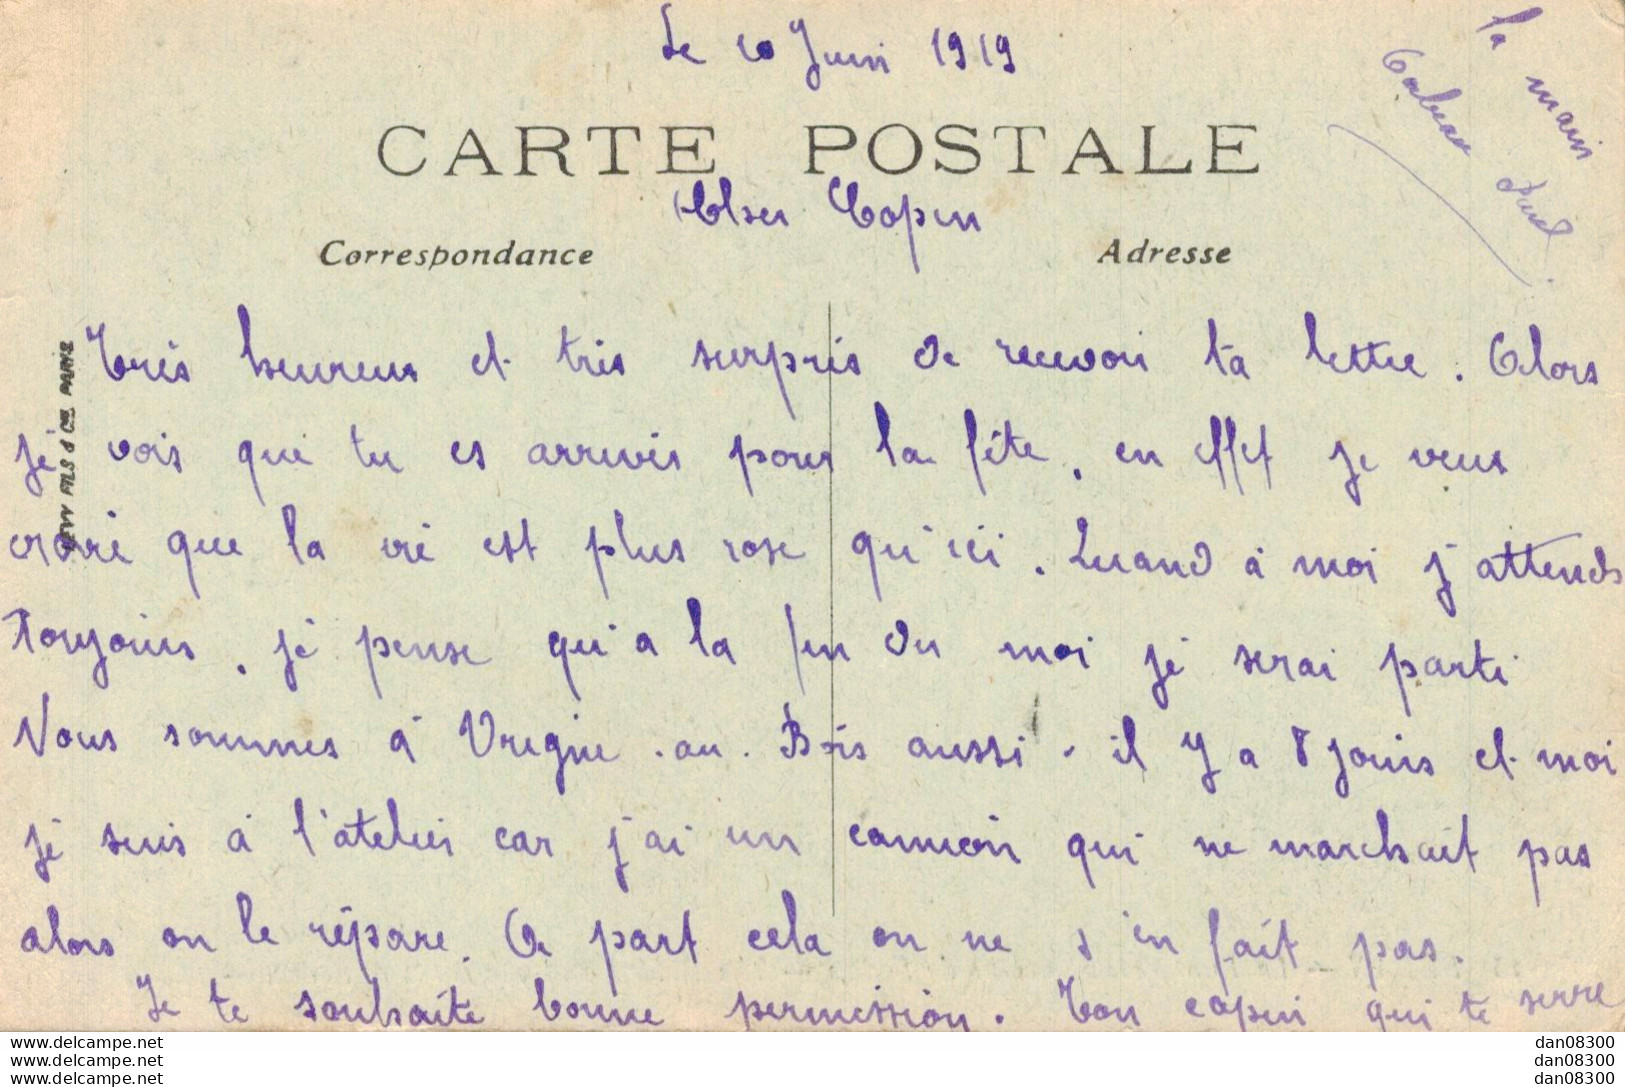 Le 10 Juin 1919
CARTE POSTALE
Cher Copin
Correspondance
Adresse
Très heureux et très surpris de recevoir ta lettre. Alors
je vois que tu es arrivés pour la fête, en effet je veux
croire que la vie est plus rose qu'ici. Quand à moi j'attends
Toujours, je pense qu'a la fin du moi je serai parti
Nous sommes à Vrigne-au-Bois aussi. il y a 8 jours et moi
je suis à l'atelier car j'ai un camion qui ne marchait pas
alors on le répare. A part cela on ne s'en fait pas.
Je te souhaite bonne permission. Ton copin qui te serre
la main
Paul
LEVY FILS & Cie PARIS
www.delcampe.net
www.delcampe.net
www.delcampe.net
dan08300
dan08300
dan08300